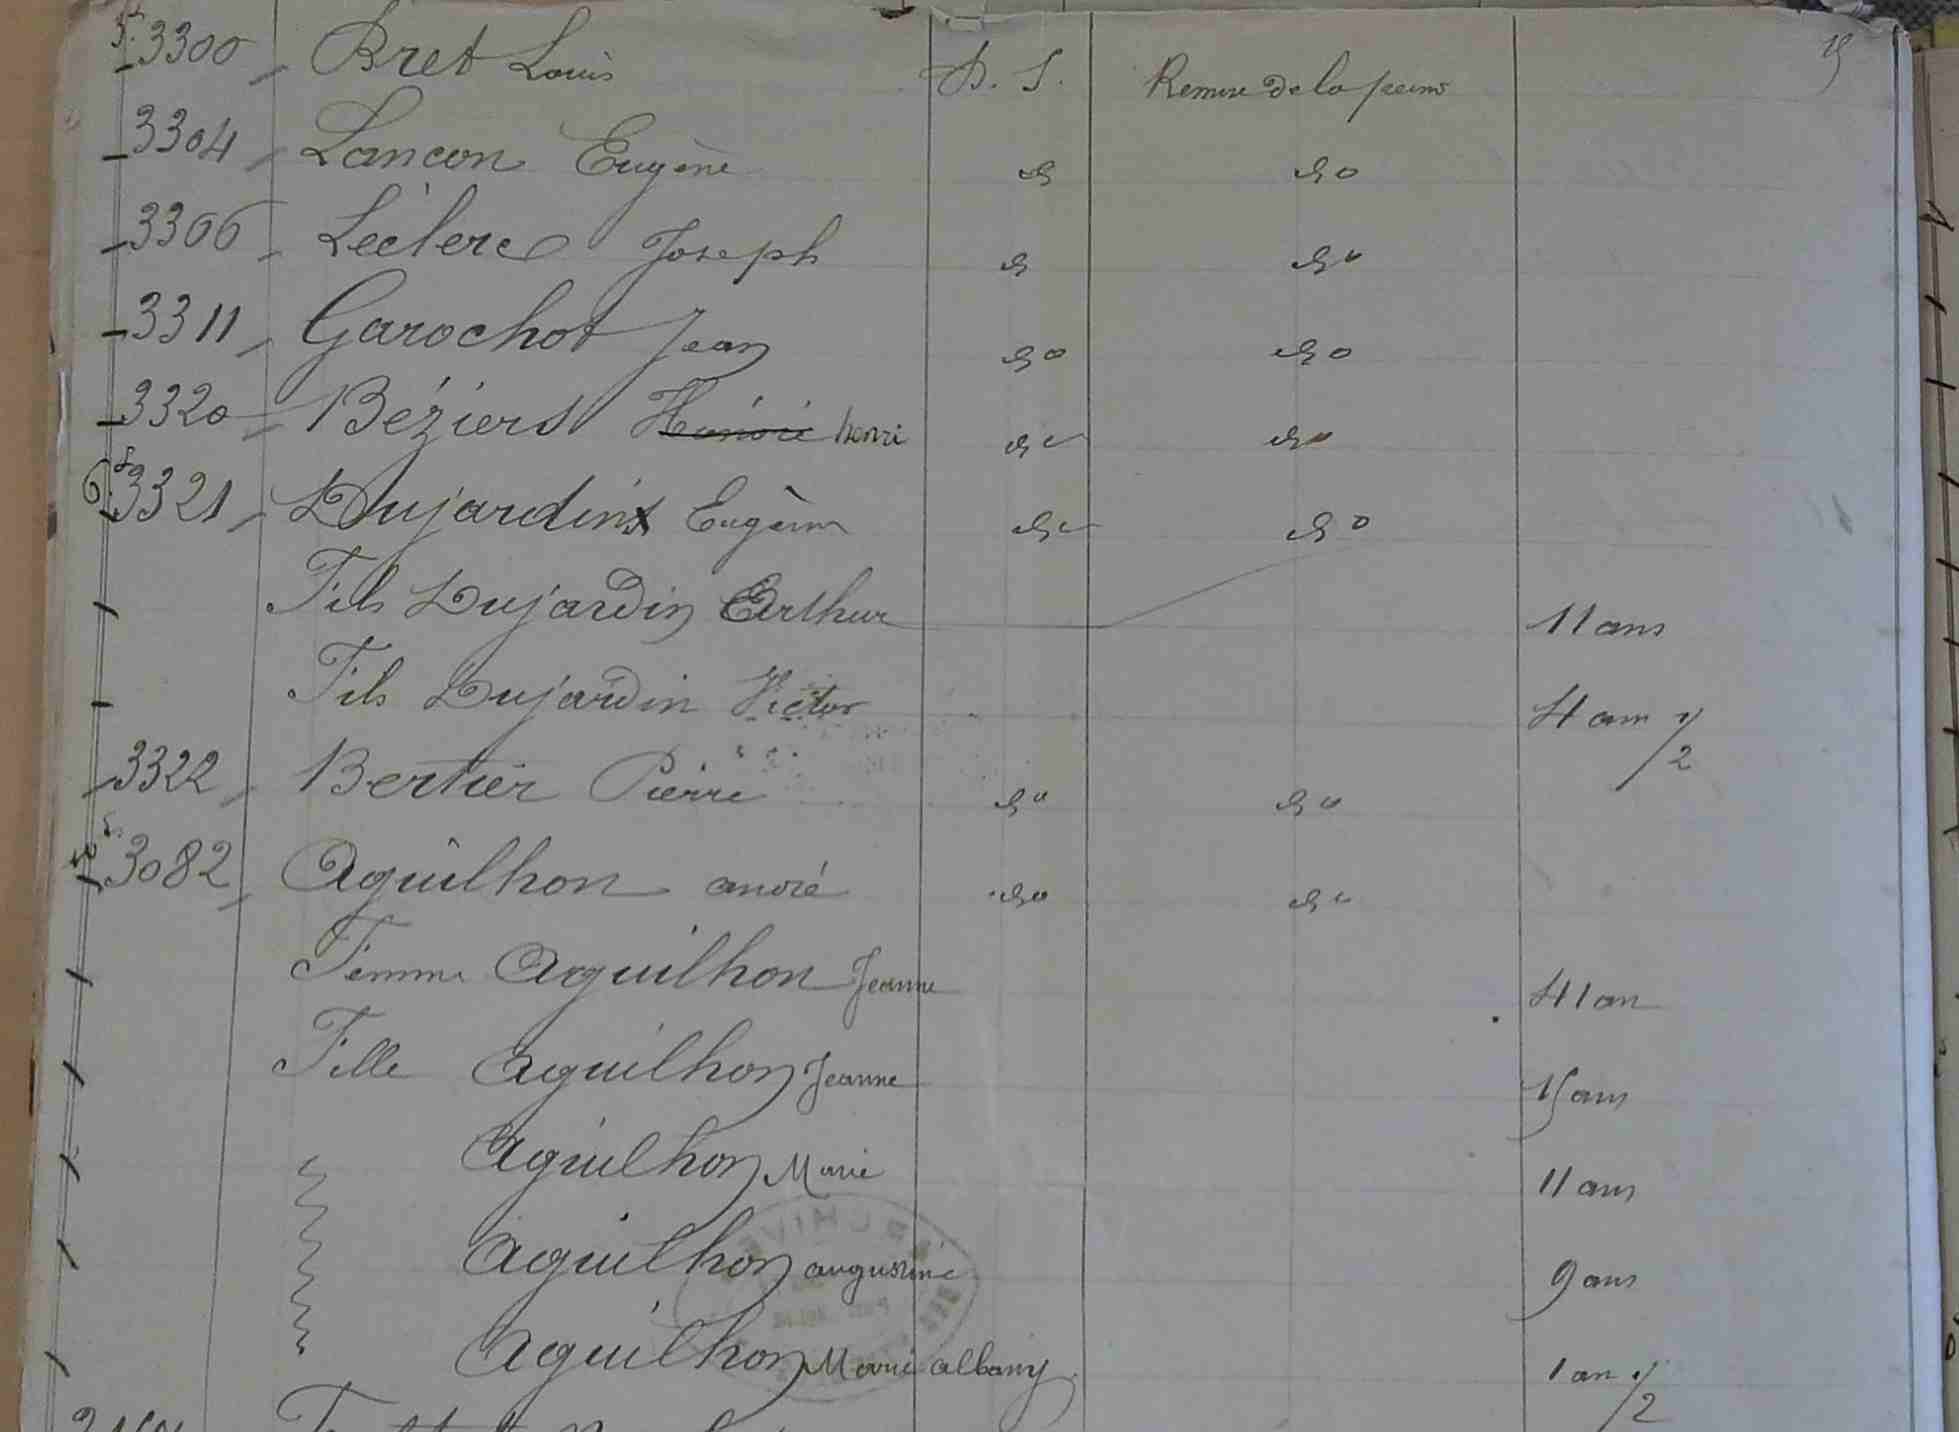 3300 Bret Louis D. S. Remise de la peine 15
3304 Lancon Eugène do do
3306 Léclerc Joseph do do
3311 Garochot Jean do do
3320 Béziers Honoré henri do do
3321 Dujardin Eugène do do
Fils Dujardin Arthur 11 ans
Fils Dujardin Victor 4 ans 1/2
3322 Bertier Pierre do do
3082 Aguilhon andré do do
Femme Aguilhon Jeanne 41 an
Fille Aguilhon Jeanne 15 ans
Aguilhon Marie 11 ans
Aguilhon augustine 9 ans
Aguilhon Marie albany 1 an 1/2